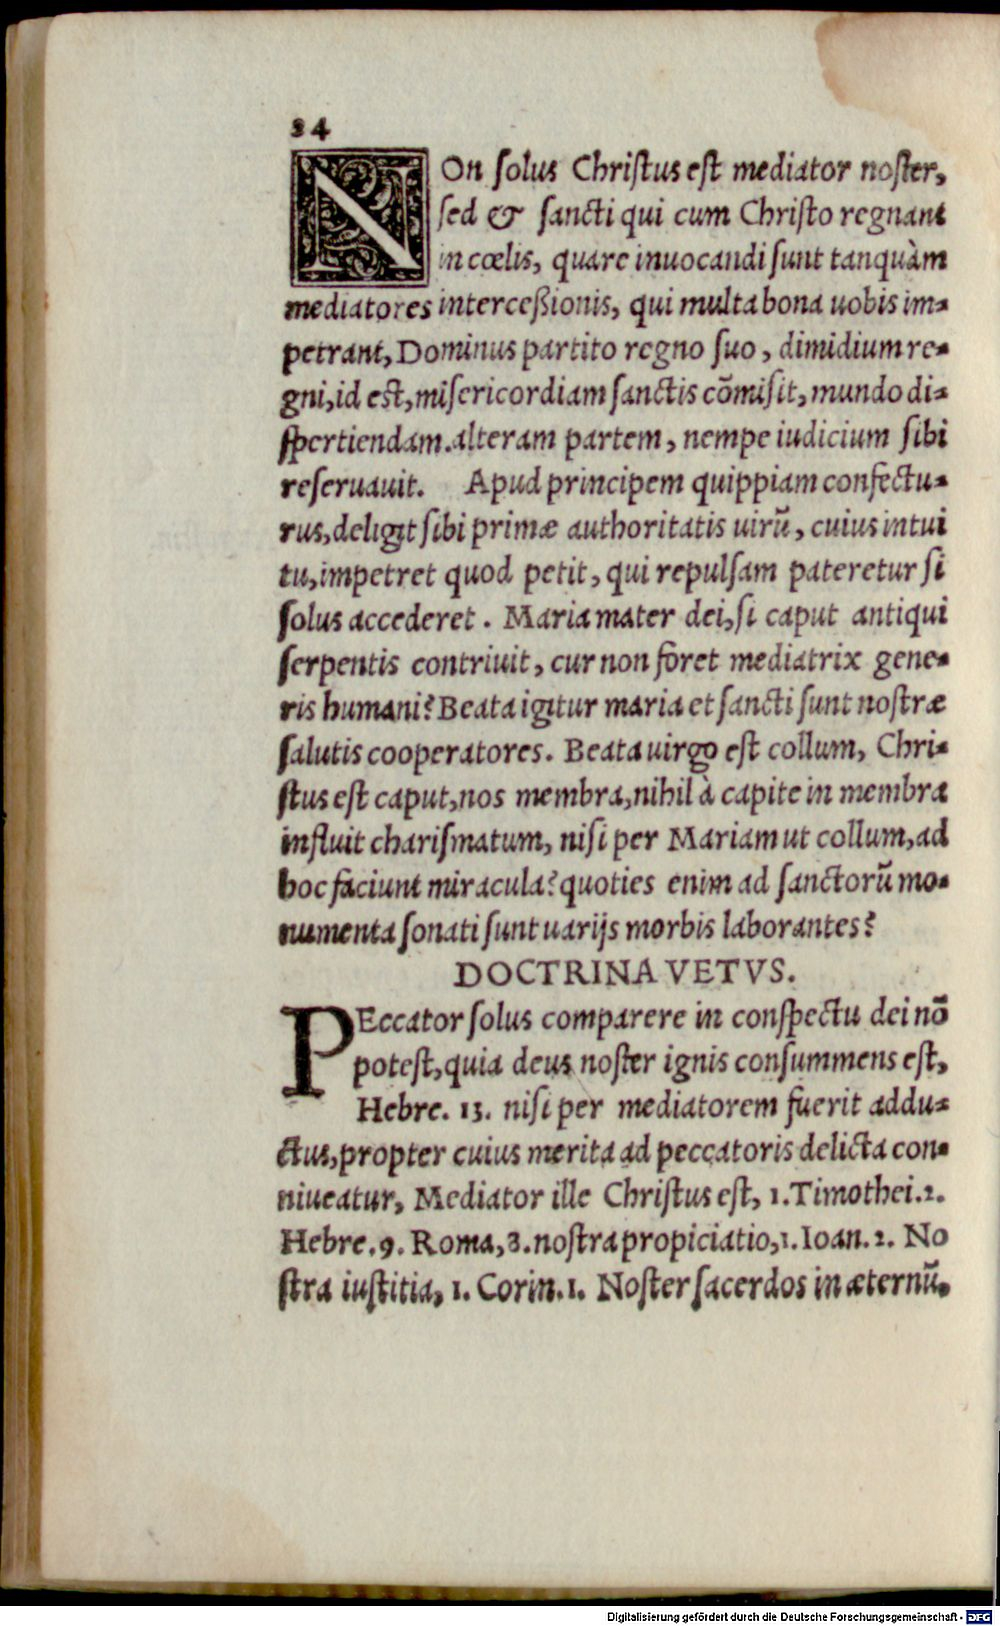 24
NOn ſolus Chriſtus eſt mediator noſter,
ſed & ſancti qui cum Chriſto regnant
in cœlis, quare inuocandi ſunt tanquàm
mediatores interceßionis, qui multa bona uobis im-
petrant, Dominus partito regno ſuo, dimidium re-
gni, id eſt, miſericordiam ſanctis cōmiſit, mundo di-
ſpertiendam. alteram partem, nempe iudicium ſibi
reſeruauit. Apud principem quippiam confectu-
rus, deligit ſibi primæ authoritatis uirū, cuius intui
tu, impetret quod petit, qui repulſam pateretur ſi
ſolus accederet. Maria mater dei, ſi caput antiqui
ſerpentis contriuit, cur non foret mediatrix gene-
ris humani? Beata igitur maria et ſancti ſunt noſtræ
ſalutis cooperatores. Beata uirgo eſt collum, Chri-
ſtus eſt caput, nos membra, nihil à capite in membra
influit chariſmatum, niſi per Mariam ut collum, ad
hoc faciunt miracula? quoties enim ad ſanctorū mo-
numenta ſonati ſunt uarijs morbis laborantes?
DOCTRINA VETVS.
PEccator ſolus comparere in conſpectu dei nō
poteſt, quia deus noſter ignis conſummens eſt,
Hebre. 13. niſi per mediatorem fuerit addu-
ctus, propter cuius merita ad peccatoris delicta con-
niueatur, Mediator ille Chriſtus eſt, 1. Timothei. 2.
Hebre. 9. Roma, 3. noſtra propiciatio, 1. Ioan. 2. No
ſtra iuſtitia, 1. Corin. 1. Noſter ſacerdos in æternū.
Digitalisierung gefördert durch die Deutsche Forschungsgemeinschaft - DFG